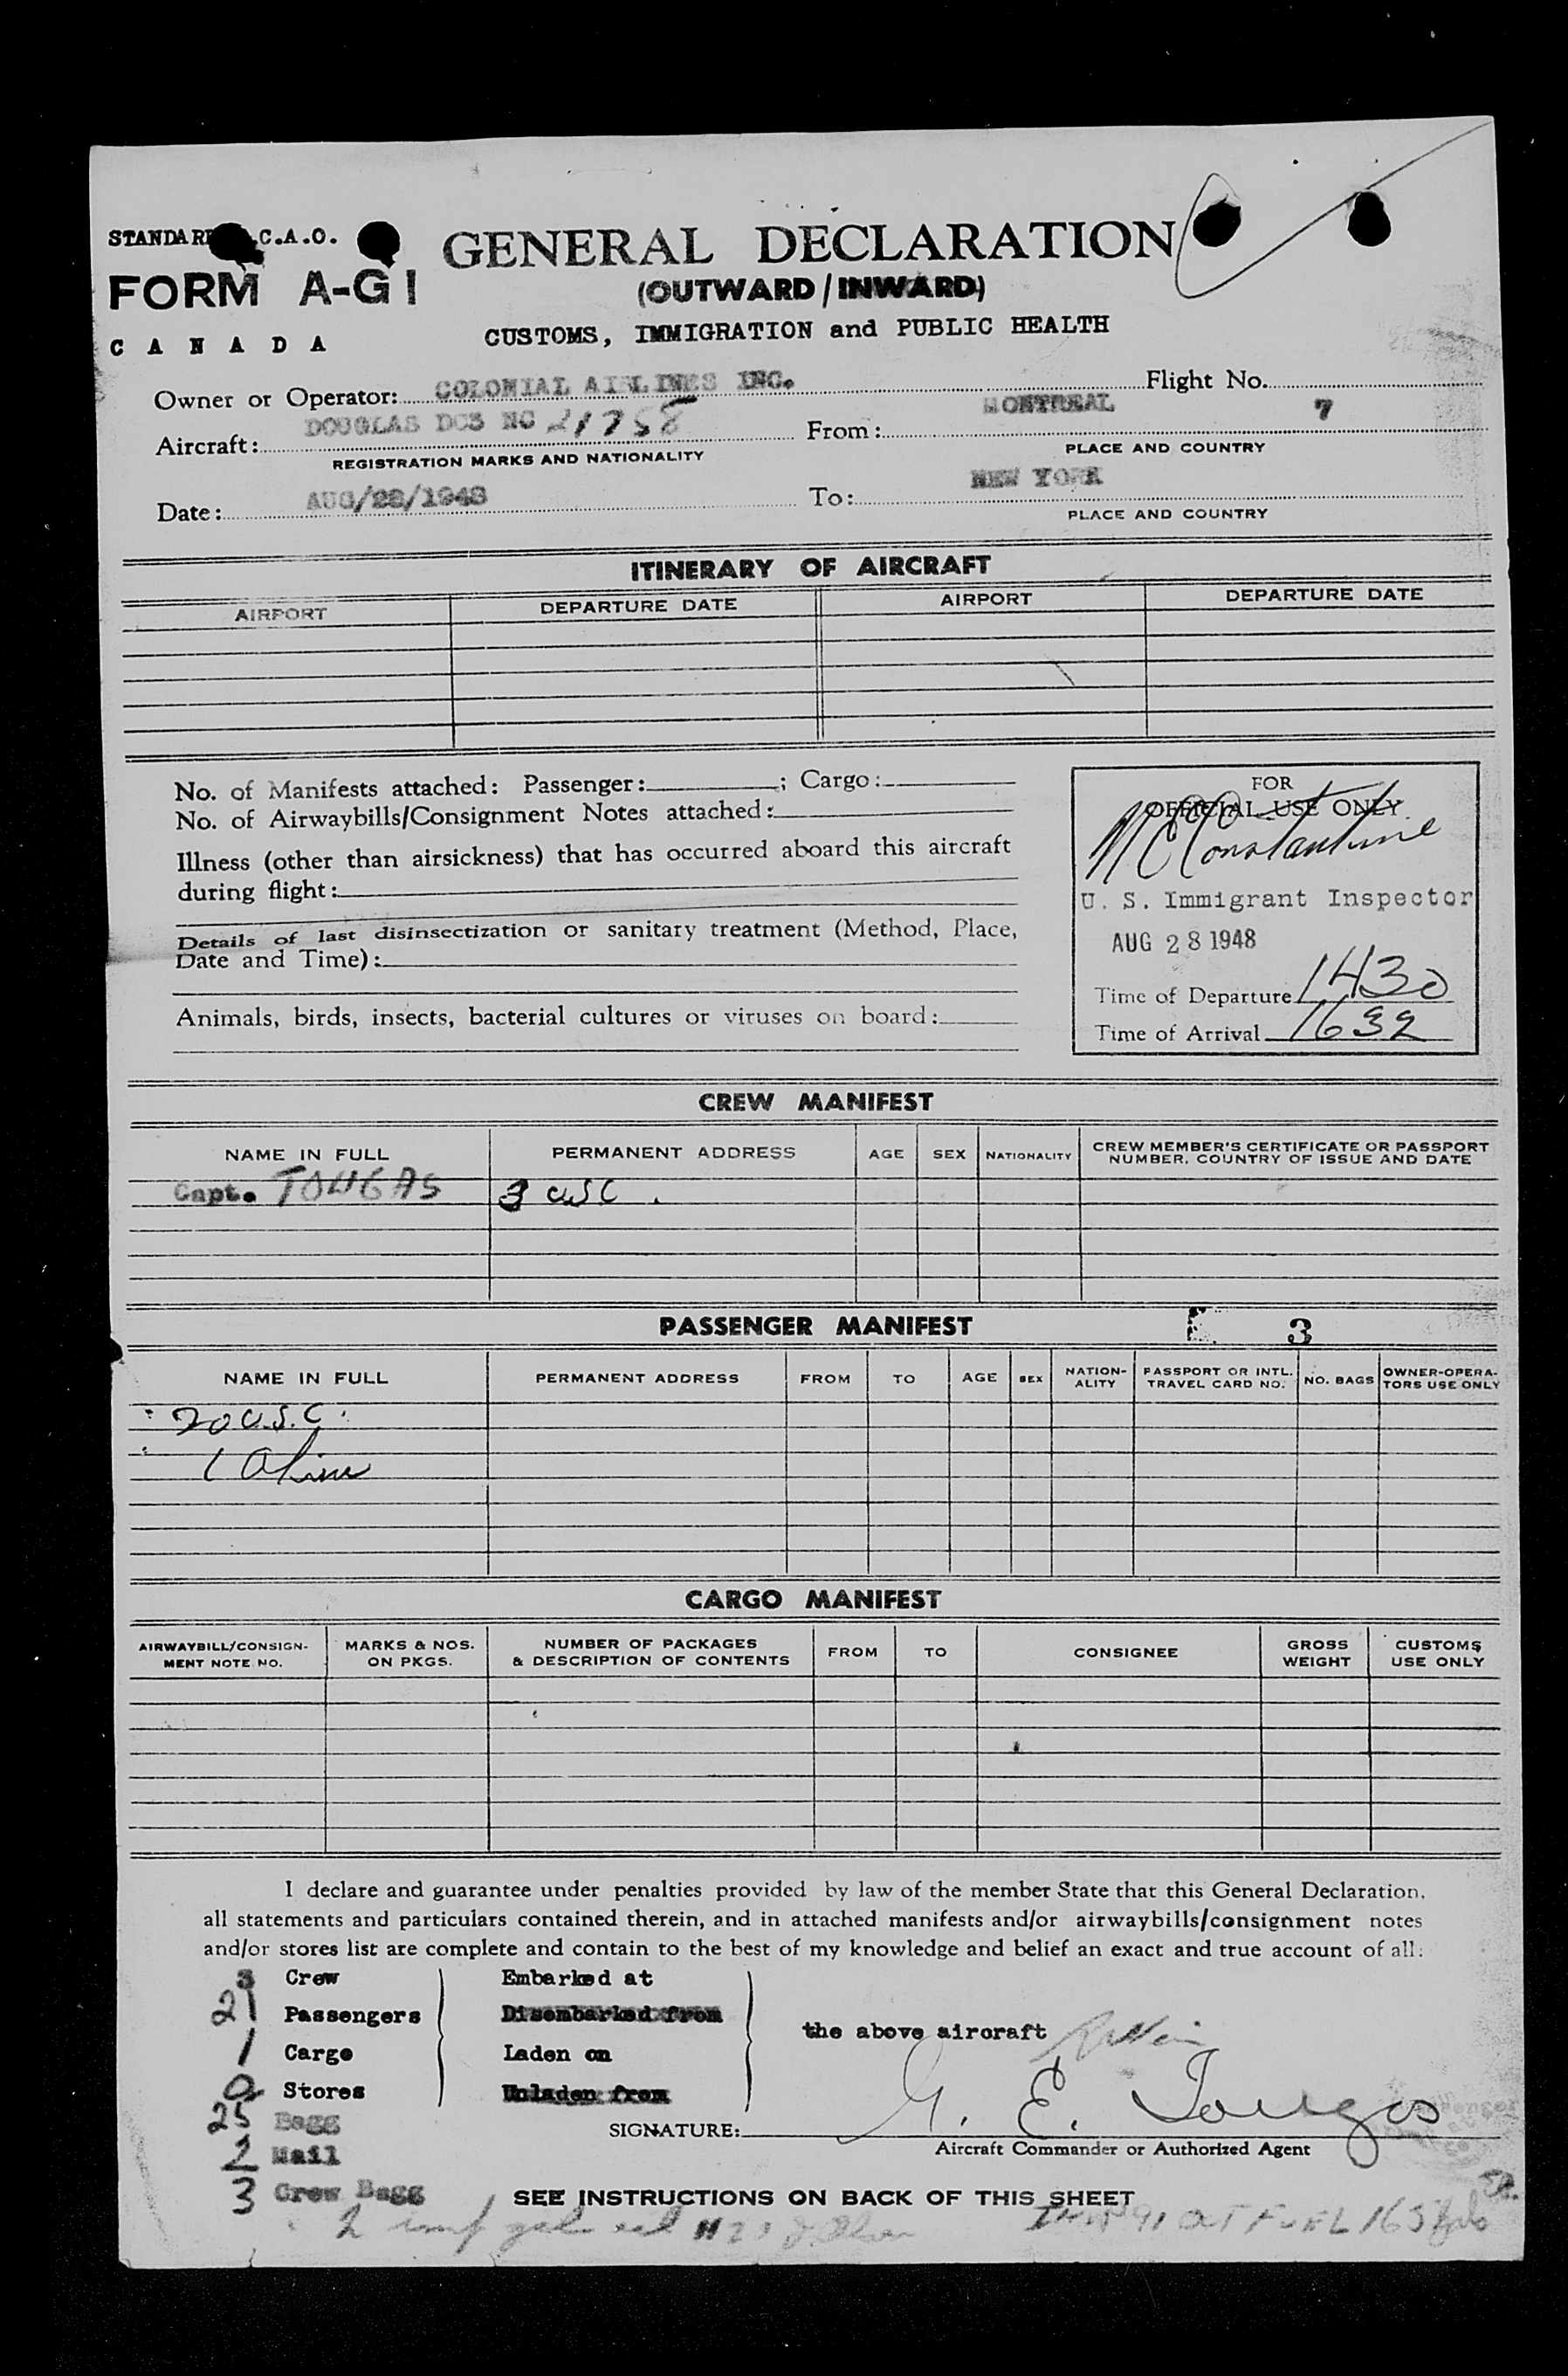 STANDARD C.A.O.
FORM A-G1
CANADA
GENERAL DECLARATION
(OUTWARD/INWARD)
CUSTOMS, IMMIGRATION and PUBLIC HEALTH
Owner or Operator: COLONIAL AIRLINES INC. Flight No.
Aircraft: DOUGLAS DC3 NC 21758 From: MONTREAL 7
REGISTRATION MARKS AND NATIONALITY PLACE AND COUNTRY
Date: AUG/28/1948 To: NEW YORK
PLACE AND COUNTRY
ITINERARY OF AIRCRAFT
AIRPORT DEPARTURE DATE AIRPORT DEPARTURE DATE
No. of Manifests attached: Passenger: ; Cargo:
No. of Airwaybills/Consignment Notes attached:
Illness (other than airsickness) that has occurred aboard this aircraft
during flight:
Details of last disinsectization or sanitary treatment (Method, Place,
Date and Time):
Animals, birds, insects, bacterial cultures or viruses on board:
FOR
OFFICIAL USE ONLY
Constantine
U. S. Immigrant Inspector
AUG 28 1948
Time of Departure 1430
Time of Arrival 1632
CREW MANIFEST
NAME IN FULL PERMANENT ADDRESS AGE SEX NATIONALITY CREW MEMBER'S CERTIFICATE OR PASSPORT NUMBER, COUNTRY OF ISSUE AND DATE
Capt. TOUGAS 3 USC.
PASSENGER MANIFEST 3
NAME IN FULL PERMANENT ADDRESS FROM TO AGE SEX NATION-ALITY PASSPORT OR INTL. TRAVEL CARD NO. NO. BAGS OWNER-OPERA-TORS USE ONLY
20 U.S.C.
1 Alien
CARGO MANIFEST
AIRWAYBILL/CONSIGN-MENT NOTE NO. MARKS & NOS. ON PKGS. NUMBER OF PACKAGES & DESCRIPTION OF CONTENTS FROM TO CONSIGNEE GROSS WEIGHT CUSTOMS USE ONLY
I declare and guarantee under penalties provided by law of the member State that this General Declaration,
all statements and particulars contained therein, and in attached manifests and/or airwaybills/consignment notes
and/or stores list are complete and contain to the best of my knowledge and belief an exact and true account of all:
3 Crew Embarked at
21 Passengers Disembarked from
the above aircraft
1 Cargo Laden on
0 Stores Unladen from
25 Bagg
SIGNATURE: G. E. Tougas
2 Mail
Aircraft Commander or Authorized Agent
3 Crew Bagg
SEE INSTRUCTIONS ON BACK OF THIS SHEET